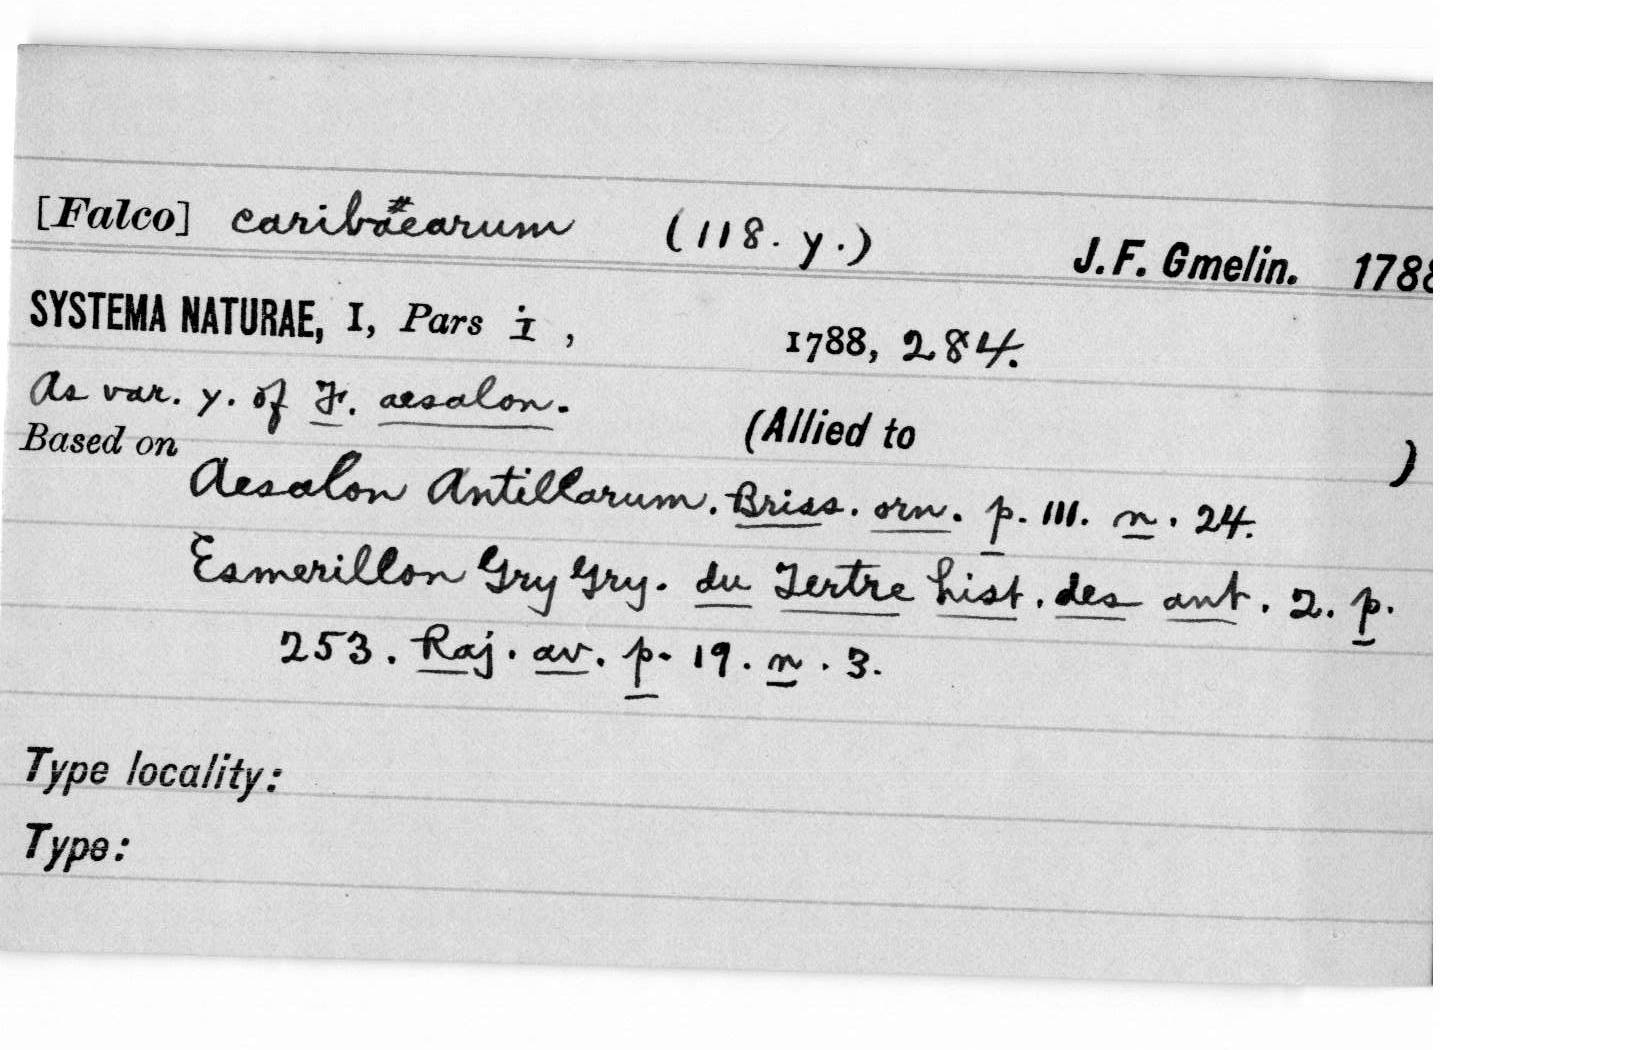 [Falco] caribaearum (118. y.) J.F. Gmelin. 1788
SYSTEMA NATURAE, I, Pars i, 1788, 284.
As var. y. of F. aesalon.
(Allied to )
Based on
Aesalon Antillarum. Briss. orn. p. 111. n. 24.
Esmerillon Gry Gry. du Tertre hist. des ant. 2. p.
253. Raj. av. p. 19. n. 3.
Type locality:
Type: